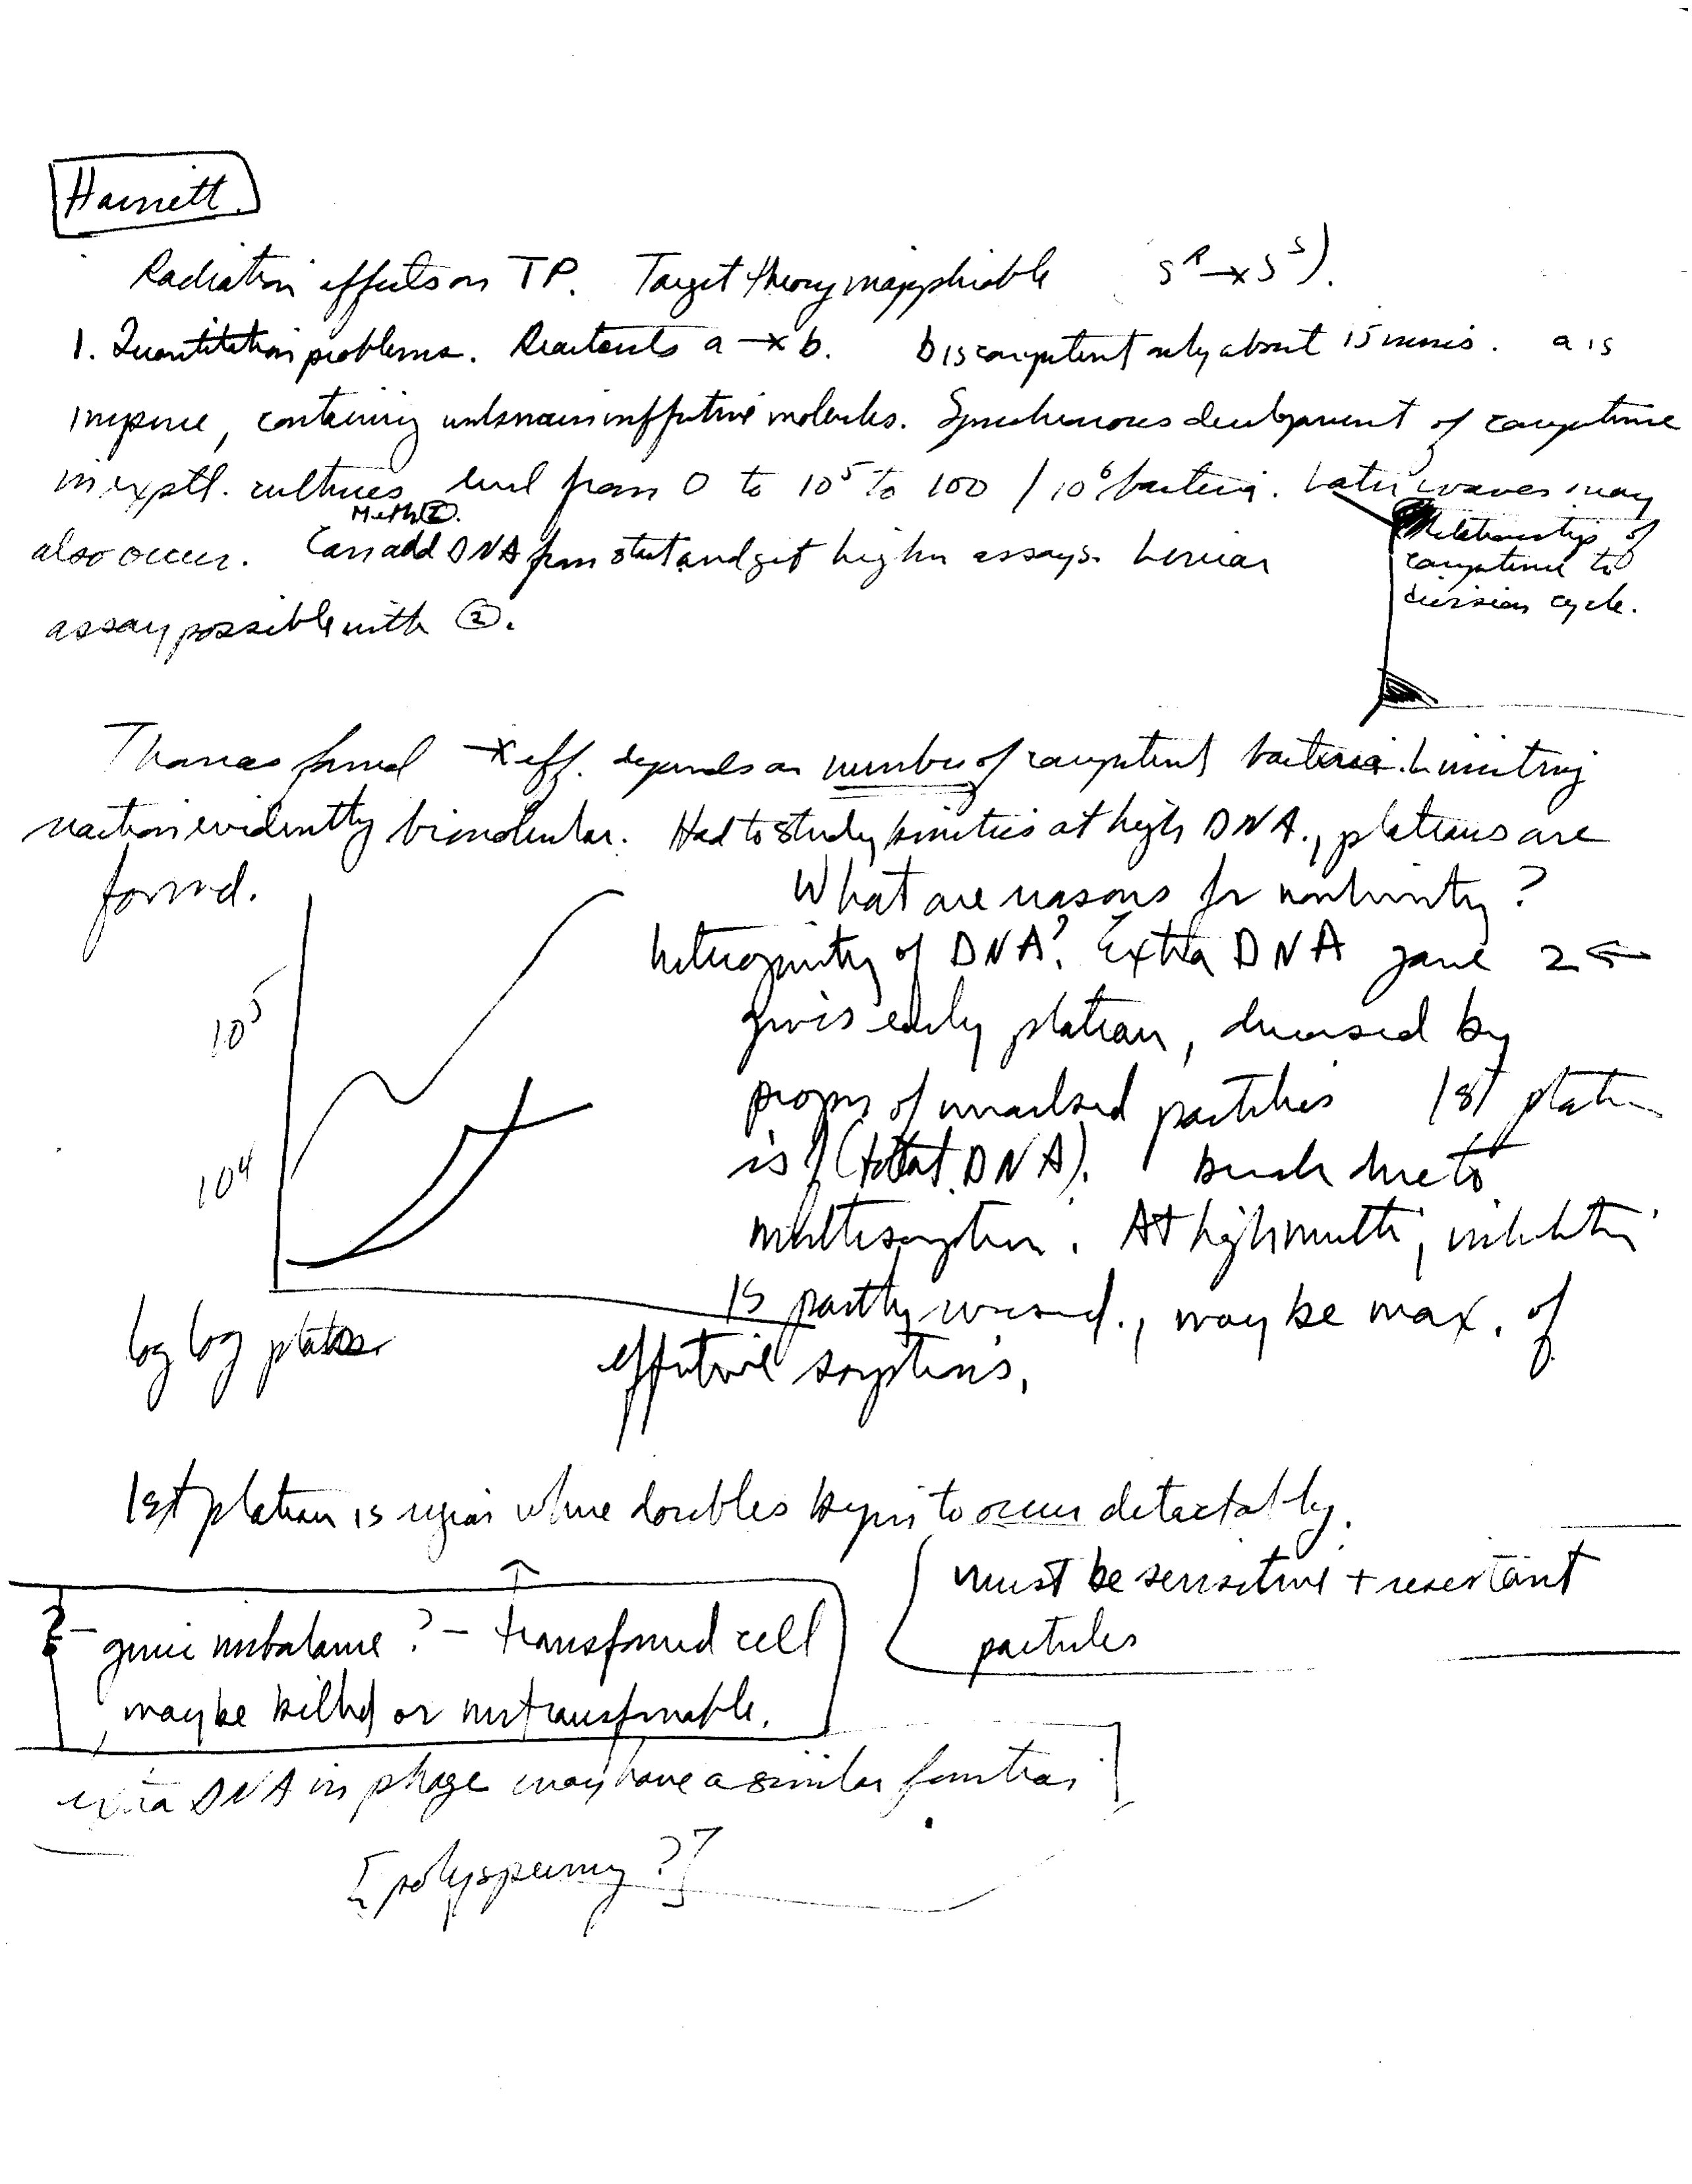 Harriett.
Radiation effects on TP. Target theory inapplicable S^R —x S^S).
1. Quantitation problems. Reactants a —x b. b is competent only about 15 mins. a is
impure, containing unknown ineffective molecules. Synchronous development of competence
in exptl. cultures, level from 0 to 10^5 to 100 / 10^6 bacteria. Later waves may
also occur. Meth ②. Can add DNA from start and get higher assays. Linear
Relationship of
competence to
division cycle.
assay possible with ②.
Thomas found —x eff. depends on number of competent bacteria. Limiting
reaction evidently bimolecular. Had to study kinetics at high DNA., plateaus are
formed. What are reasons for nonlinearity?
heterogeneity of DNA? Extra DNA gave 2 ←
10^5
gives early plateau, decreased by
propn of unmarked particles 1st plateau
10^4
is f (total DNA). break due to
multisorption. At high multi, inhibition
is partly reversed., may be max. of
log log plots. effective sorptions,
1st plateau is region where doubles begin to occur detectably.
must be sensitive + resistant
particles
? – genic imbalance? – transformed cell
may be killed or nontransformable.
extra DNA in phage may have a similar function]
[polyspermy?]